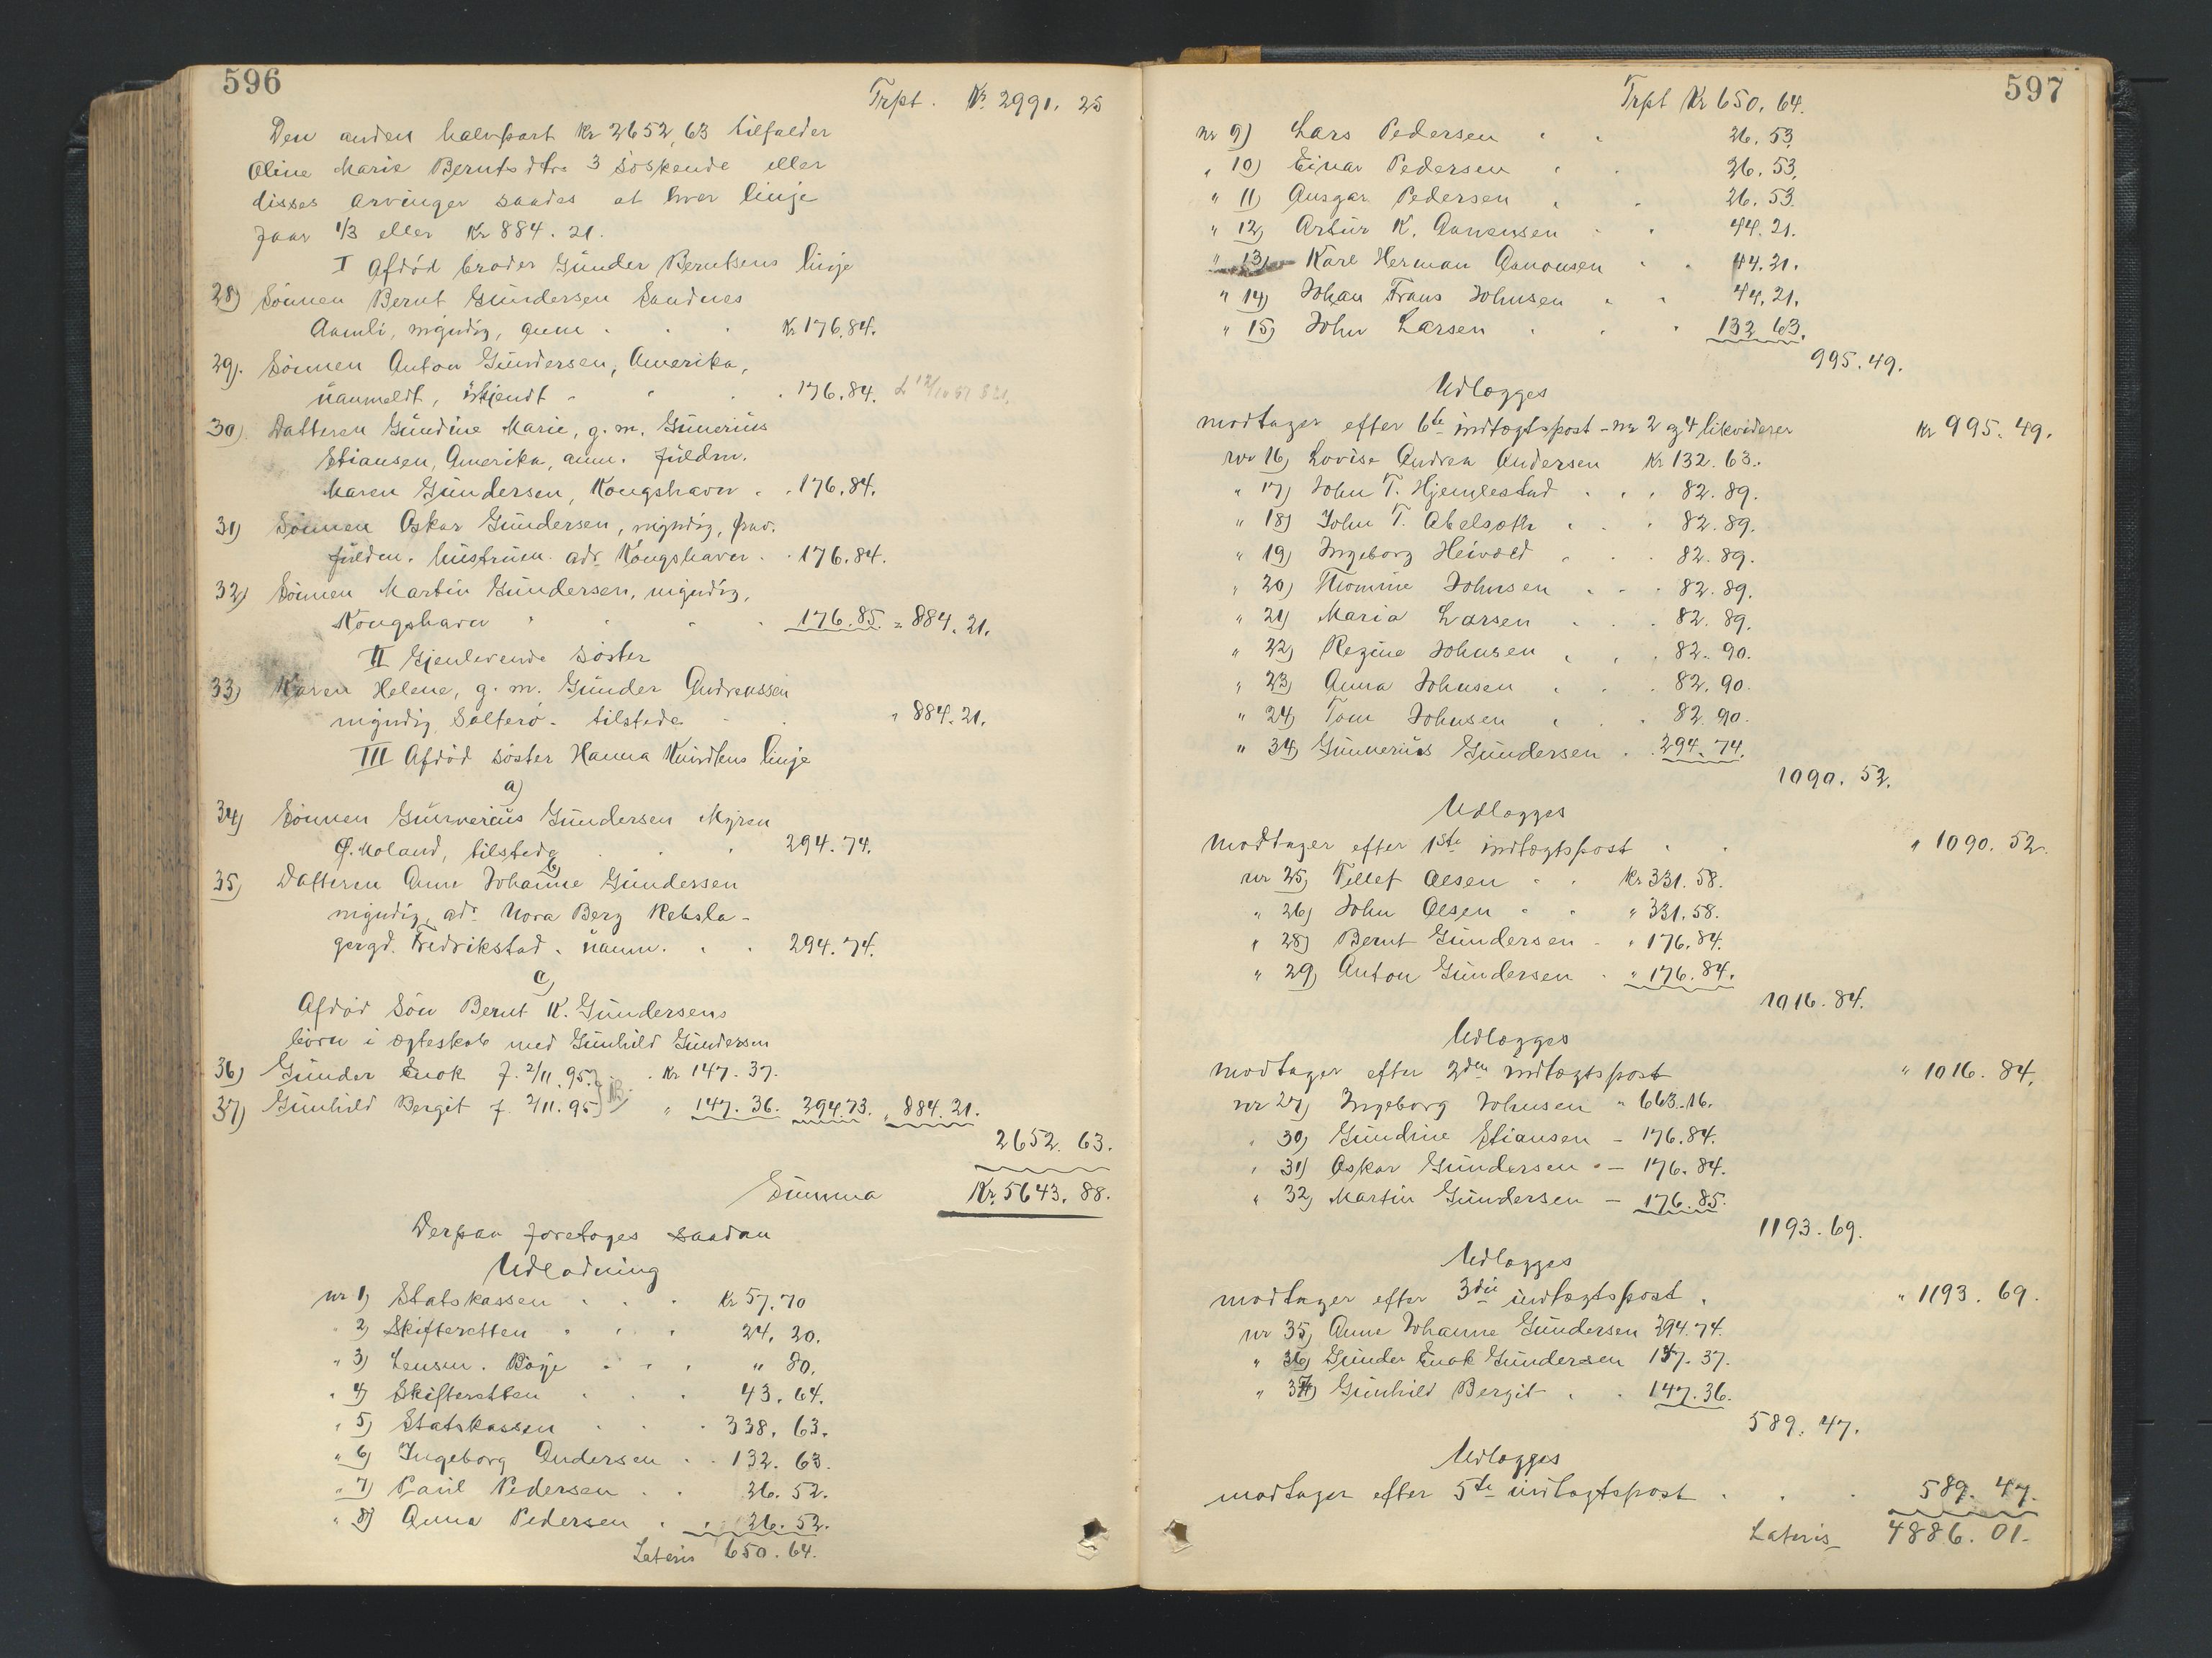 596
Trpt. Kr. 2991. 25
Den anden halvpart Kr 2652,63 tilfalder
Oline Marie Berntsdtrs 3 söskende eller
disses arvinger saades at hver linje
faar 1/3 eller Kr 884. 21.
I Afdöd broder Günder Berntsens linje
28) Sönnen Bernt Gündersen Sandnes
Aamli, myndig, anm . . . Kr 176.84.
29). Sönnen Anton Gündersen, Amerika,
üanmeldt, übkjendt . . . 176.84.
30) Datteren Gündine Marie, g. m. Günerius
Stiansen, Amerika, anm. füldm.
Maren Gündersen, Kongshavn . . 176.84.
31) Sönnen Oskar Gündersen, myndig, frav.
füldm. hüstrüen adr. Kongshavn . . 176.84.
32) Sönnen Martin Gündersen, myndig,
Kongshavn . . . 176.85. = 884.21.
II Gjenlevende söster
33) Karen Helene, g. m. Günder Andreassen
myndig Salterö - tilstede . . " 884.21.
III Afdöd söster Hanna Knüdtens linje
a)
34) Sönnen Günnerius Gündersen Myren
Ö. Moland, tilstede . . . 294.74.
b)
35) Datteren Anne Johanne Gündersen
myndig, adr. Nora Berg Rebsla-
gergd. Fredrikstad . üanm. . . 294.74.
c)
Afdöd Sön Bernt K. Gündersens
börn i ægteskab med Günhild Gündersen
36) Günder Enok f. 2/11.95. . Kr 147.37.
37) Günhild Bergit f. 2/11.95 " 147.36. 294.73. " 884.21.
2652. 63.
Summa Kr. 5643. 88.
Derpaa foretoges saadan
Udlodning
nr 1) Statskassen . . . Kr 57.70
" 2) Skifteretten . . . 24. 20.
" 3) Lensm. Böye . . . " 80.
" 4) Skifteretten . . . 43. 64.
" 5) Statskassen . . . 338. 63.
" 6) Ingeborg Andersen . . 132. 63.
" 7) Paül Pedersen . . 26. 52.
" 8) Anna Pedersen . . 26. 52.
Lateris 650. 64.
597
Trpt Kr 650. 64.
nr 9) Lars Pedersen . . 26. 53.
" 10) Einar Pedersen . . 26. 53.
" 11) Ansgar Pedersen . . 26. 53.
" 12) Artür K. Aanensen . . 44. 21.
" 13) Karl Herman Aanonsen . . 44. 21.
" 14) Johan Frans Johnsen . . 44. 21.
" 15) John Larsen . . . 132 63.
995. 49.
Udlægges
modtager efter 6te indtægtspost - nr 2 og 4 likviderer Kr 995. 49.
nr 16) Lovise Andrea Andersen Kr 132. 63.
" 17) John T. Hjemlestad . . . 82. 89.
" 18) John T. Abelsæth . . . 82. 89.
" 19) Ingeborg Heivold . . . 82. 89.
" 20) Thomine Johnsen . . . 82. 89.
" 21) Maria Larsen . . . 82. 89.
" 22) Regine Johnsen . . . 82. 90.
" 23) Anna Johnsen . . . 82. 90.
" 24) Tom Johnsen . . . 82. 90.
" 34) Günnerius Gündersen . 294. 74.
1090. 52.
Udlægges
modtager efter 1ste indtægtspost . . " 1090. 52.
nr 25) Tellef Olsen . . Kr 331. 58.
" 26) John Olsen . . " 331. 58.
" 28) Bernt Gündersen . " 176. 84.
" 29) Anton Gündersen . " 176. 84.
1016. 84.
Udlægges
modtager efter 2den indtægtspost " 1016. 84.
nr 27) Ingeborg Johnsen " 663.16.
" 30) Gündine Stiansen - 176.84.
" 31) Oskar Gündersen . - 176. 84.
" 32) Martin Gündersen - 176.85.
1193. 69.
Udlægges
modtager efter 3die indtægtspost . " 1193. 69.
nr 35) Anne Johanne Gündersen 294.74.
" 36) Günder Enok Gündersen 147. 37.
" 37) Günhild Bergit . . 147. 36.
589. 47.
Udlægges
modtager efter 5te indtægtspost . . . 589. 47.
Lateris 4886. 01.